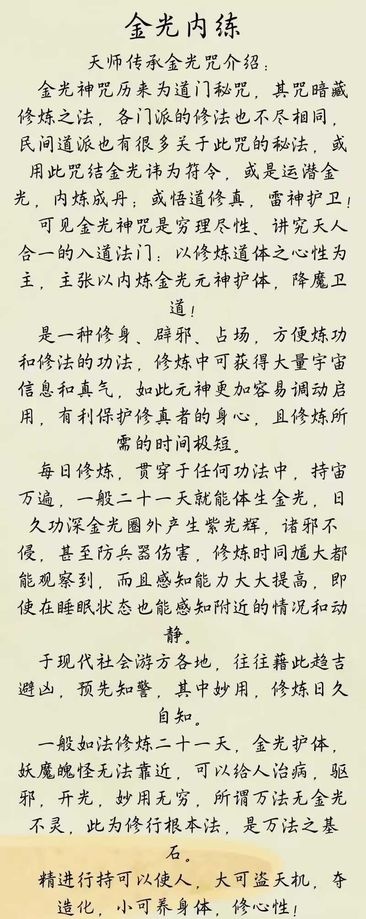 金光内练
天师传承金光咒介绍：
金光神咒历来为道门秘咒，其咒暗藏
修炼之法，各门派的修法也不尽相同，
民间道派也有很多关于此咒的秘法，或
用此咒结金光讳为符令，或是运潜金
光，内炼成丹；或悟道修真，雷神护卫！
可见金光神咒是穷理尽性、讲究天人
合一的入道法门：以修炼道体之心性为
主，主张以内炼金光元神护体，降魔卫
道！
是一种修身、辟邪、占场，方便炼功
和修法的功法，修炼中可获得大量宇宙
信息和真气，如此元神更加容易调动启
用，有利保护修真者的身心，且修炼所
需的时间极短。
每日修炼，贯穿于任何功法中，持宙
万遍，一般二十一天就能体生金光，日
久功深金光圈外产生紫光辉，诸邪不
侵，甚至防兵器伤害，修炼时同尴大都
能观察到，而且感知能力大大提高，即
使在睡眠状态也能感知附近的情况和动
静。
于现代社会游方各地，往往藉此趋吉
避凶，预先知警，其中妙用，修炼日久
自知。
一般如法修炼二十一天，金光护体，
妖魔魄怪无法靠近，可以给人治病，驱
邪，开光，妙用无穷，所谓万法无金光
不灵，此为修行根本法，是万法之基
石。
精进行持可以使人，大可盗天机，夺
造化，小可养身体，修心性！